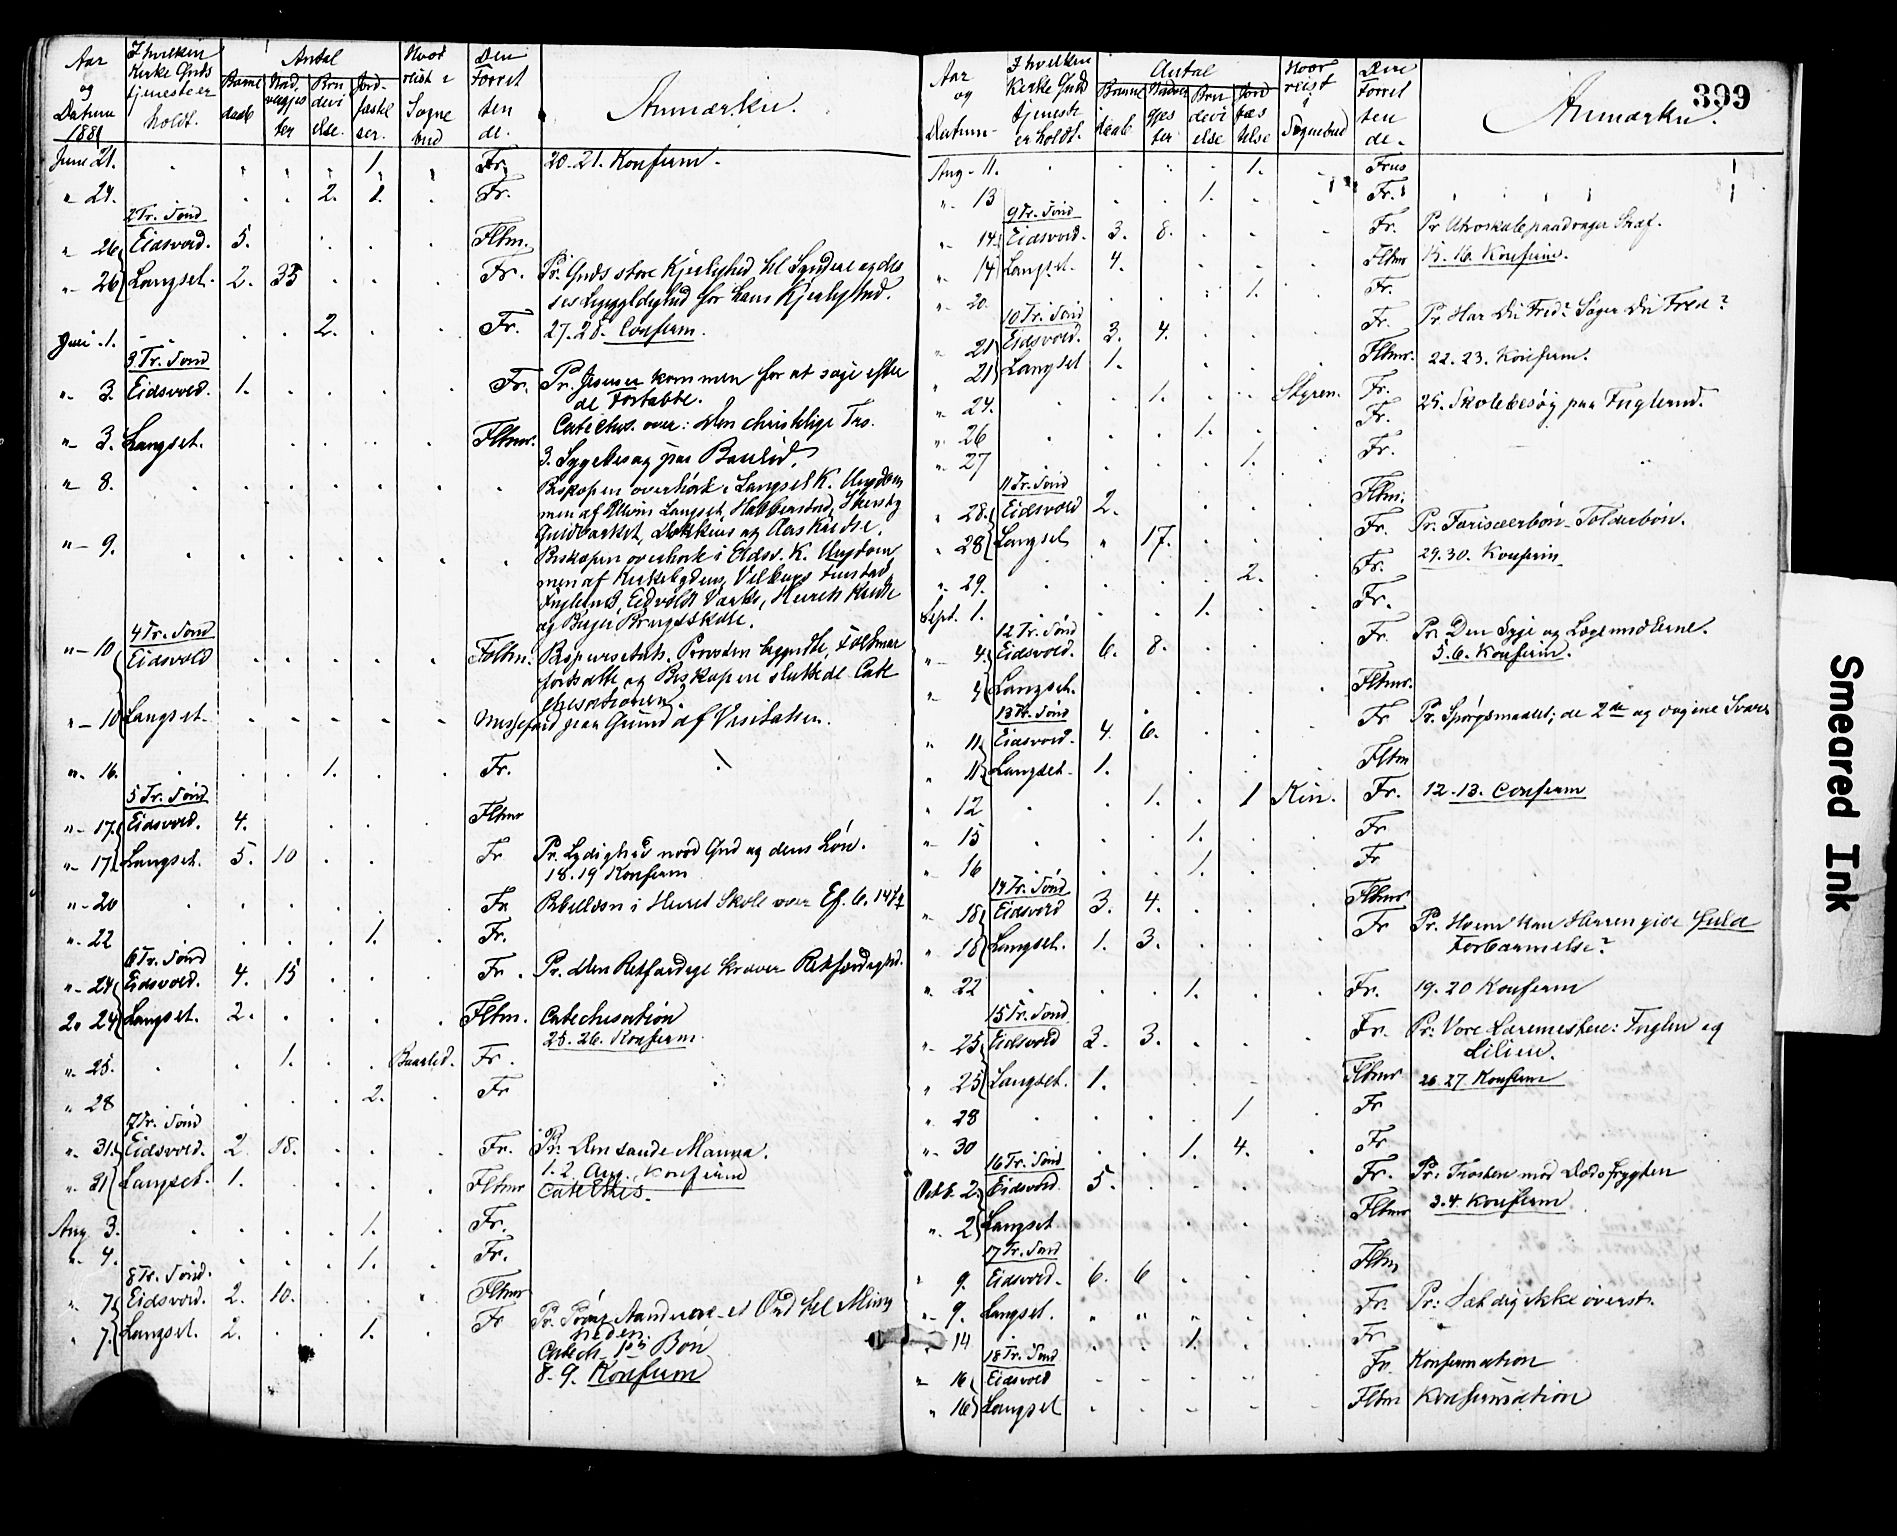 Aar og Datum 1881
I hvilken Kirke Guds tjeneste er holdt.
Antal
Barne daab
Nad vergjes ter
Bru devi else.
Jord-fæstel ser.
Hvor reist i Sogne bud
Den Forret ten de.
Anmærkn.
June 21. 1. Fr. 20-21. Konfirm.
" 24. 2. 1. Fr.
2 Tr. Sønd
" 26 Eidsvold. 5. Fltm.
" 26 Langset. 2. 35 Fr. Pr. Guds store Kjerlighed til Syndere og des
ses Ligegyldighed for hans Kjerlighed.
Juli 1. 2. Fr. 27-28. Confirm.
3 Tr. Sønd
" 3. Eidsvold. 1. Fr. Pr. Jesus er kommen for at søge efter
de Fortabte.
" 3. Langset. Fltmr. Catechis. over: Den christelige Tro.
3. Sygebesøg paa Baarlid.
" 8. Biskopen overhørte i Langset K. Ungdom
men af Langset, Habberstad,
Guldværket, Dokknes og Aas Kredse.
" 9. Biskopen overhørte i Eidsv. K. Ungdom
men af Kirkebygdens,
Fuglerud, Eidvolds Værks, Hurets Kreds
og Borger Brugsskole.
4 Tr. Sønd
" 10 Eidsvold Foltm. Bispevisitats. Provsten begyndte, Foltmar
fortsatte og Biskopen sluttede Cate
chesationen.
" 10 Langset. Messefald paa Grund af Visitatsen.
" 16. 1. Fr.
5 Tr. Sønd
" 17. Eidsvold. 4. Fltmr
" 17 Langset. 5. 10 Fr Pr. Lydighed mod Gud og dens Løn.
18.19 Konfirm
" 20 Fr Bibellæsn i Huret Skole over Ef. 6. 14
" 22 1. Fr.
6 Tr. Sønd
" 24 Eidsvold. 4. 15 Fr. Pr. Den Retfærdige kræver Retfærdighed.
24 Langset. 2. Fltm. Catechisation
25. 26. Konfirm.
" 25. 1. Baarlid. Fr.
" 28 2. Fr
7 Tr. Sønd
" 31. Eidsvold. 2. 18. Fr. Pr. Den sande Manna.
1. 2. Aug. Konfirm
" 31 Langset. 1. Fltmr Catechis.
Aug 3. 1. Fr.
" 4. 1. Fr.
8 Tr. Sønd.
" 7. Eidsvold. 2. 10. Fltmr
" 7. Langset. 2. 1. Fr Pr. Prøver Aanderne et Ord til Menig
heden.
Catech. Bøn
8-9. Konfirm
399
Aar og Datum
I hvilken Kirke Guds tjeneste er holdt.
Antal
Barne daab
Nadver gjes ter
Bru devi else
Jord fæs telse
Hvor reist i Sognebud
Den Forret ten de.
Anmærkn.
Aug - 11. 1. Fr
" 13 1. Fr.
9 Tr. Sønd
" 14 Eidsvold. 3. 8. Fr. Pr
" 14 Langset. 4. Fltmr 15. 16. Konfirm.
" 20. 1. Fr.
10 Tr. Sønd
" 21 Eidsvold. 3. 4. Fr. Pr. Har Du Fred? Søger Du Fred?
" 21 Langset 1. Fltmr. 22. 23. Konfirm.
" 24. 1. Styren. Fr. 25. Skolebesøg paa Fuglerud.
" 26 1. Fr.
" 27 1. Fr.
11 Tr. Sønd
" 28. Eidsvold 2. Fltm.
" 28 Langset " 17. Fr. Pr. Farisæerbøn - Tolderbøn.
29.30. Konfirm.
" 29. 2. Fr.
Sept. 1. 1. Fr.
12 Tr. Sønd
" 4. Eidsvold. 6. 8. Fr. Pr. Den Syge og Lægemidlerne.
5.6. Konfirm.
" 4 Langset. Fltmr.
13 Tr. Sønd
" 11 Eidsvold. 4. 6. Fr Pr. Spørgsmaalet; de 2de og Svarer
" 11 Langset. 1. Fltm
" 12 1. 1 Fr. 12-13. Confirm
" 15 1. Fr
" 16 1. Fr
14 Tr. Sønd
" 18 Eidsvold 3. 4. Fltmr
" 18 Langset. 1. 3. Fr Pr. Hvem kan Herren give fuld
Forbarmelse?
" 22 1. Fr. 19.20 Konfirm
15 Tr. Sønd
" 25 Eidsvold 2. 3. Fr. Pr: Vore Læremestere: Fuglen og
Lilien.
" 25 Langset. 1. Fltmr 26. 27. Konfirm
" 28 1 Fr
" 30 1. 4. Fr
16 Tr. Sønd
Octb. 2. Eidsvold. 5. Fr. Pr: Trøsten mod Dødsfrygten
" 2 Langset Fltmr 3.4. Konfirm
17 Tr. Sønd
" 9. Eidsvold. 6. 6 Fltm
" 9. Langset. Fr. Pr: Sæt dig ikke øverst.
" 14 1. Fr
18 Tr. Sønd
" 16 Eidsvold Fr. Konfirmation
" 16 Langset Fltm Konfirmation
Smeared Ink